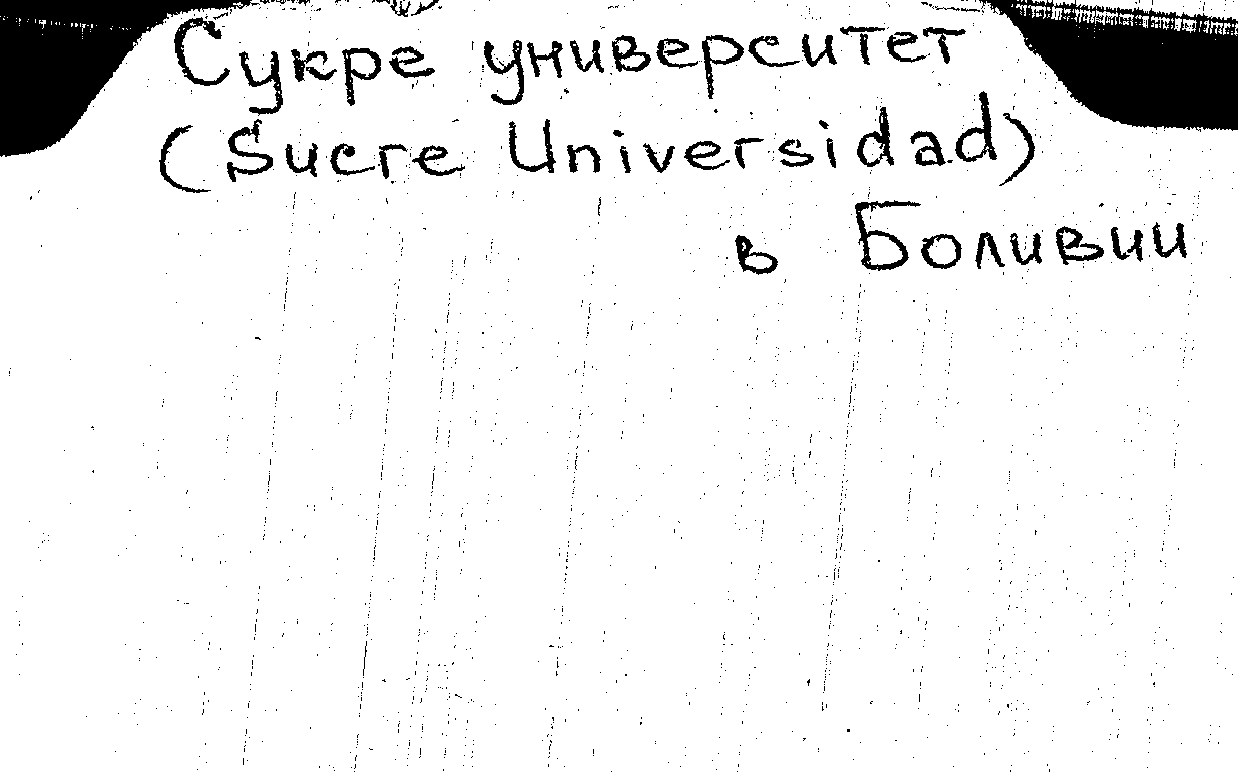 Сукре университет
(Sucre Universidad)
в Боливии